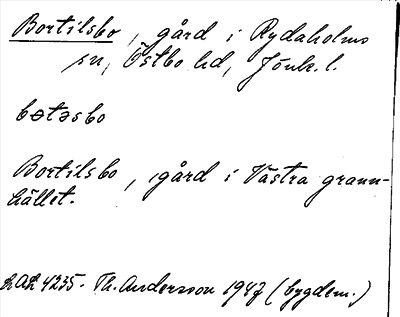 Bortilsbo, gård i Rydaholms
sn, Östbo hd, Jönk. l.
bətəsbo
Bortilsbo, gård i Västra grann-
hället.
4235. Th. Andersson 1947 (bygdem.)